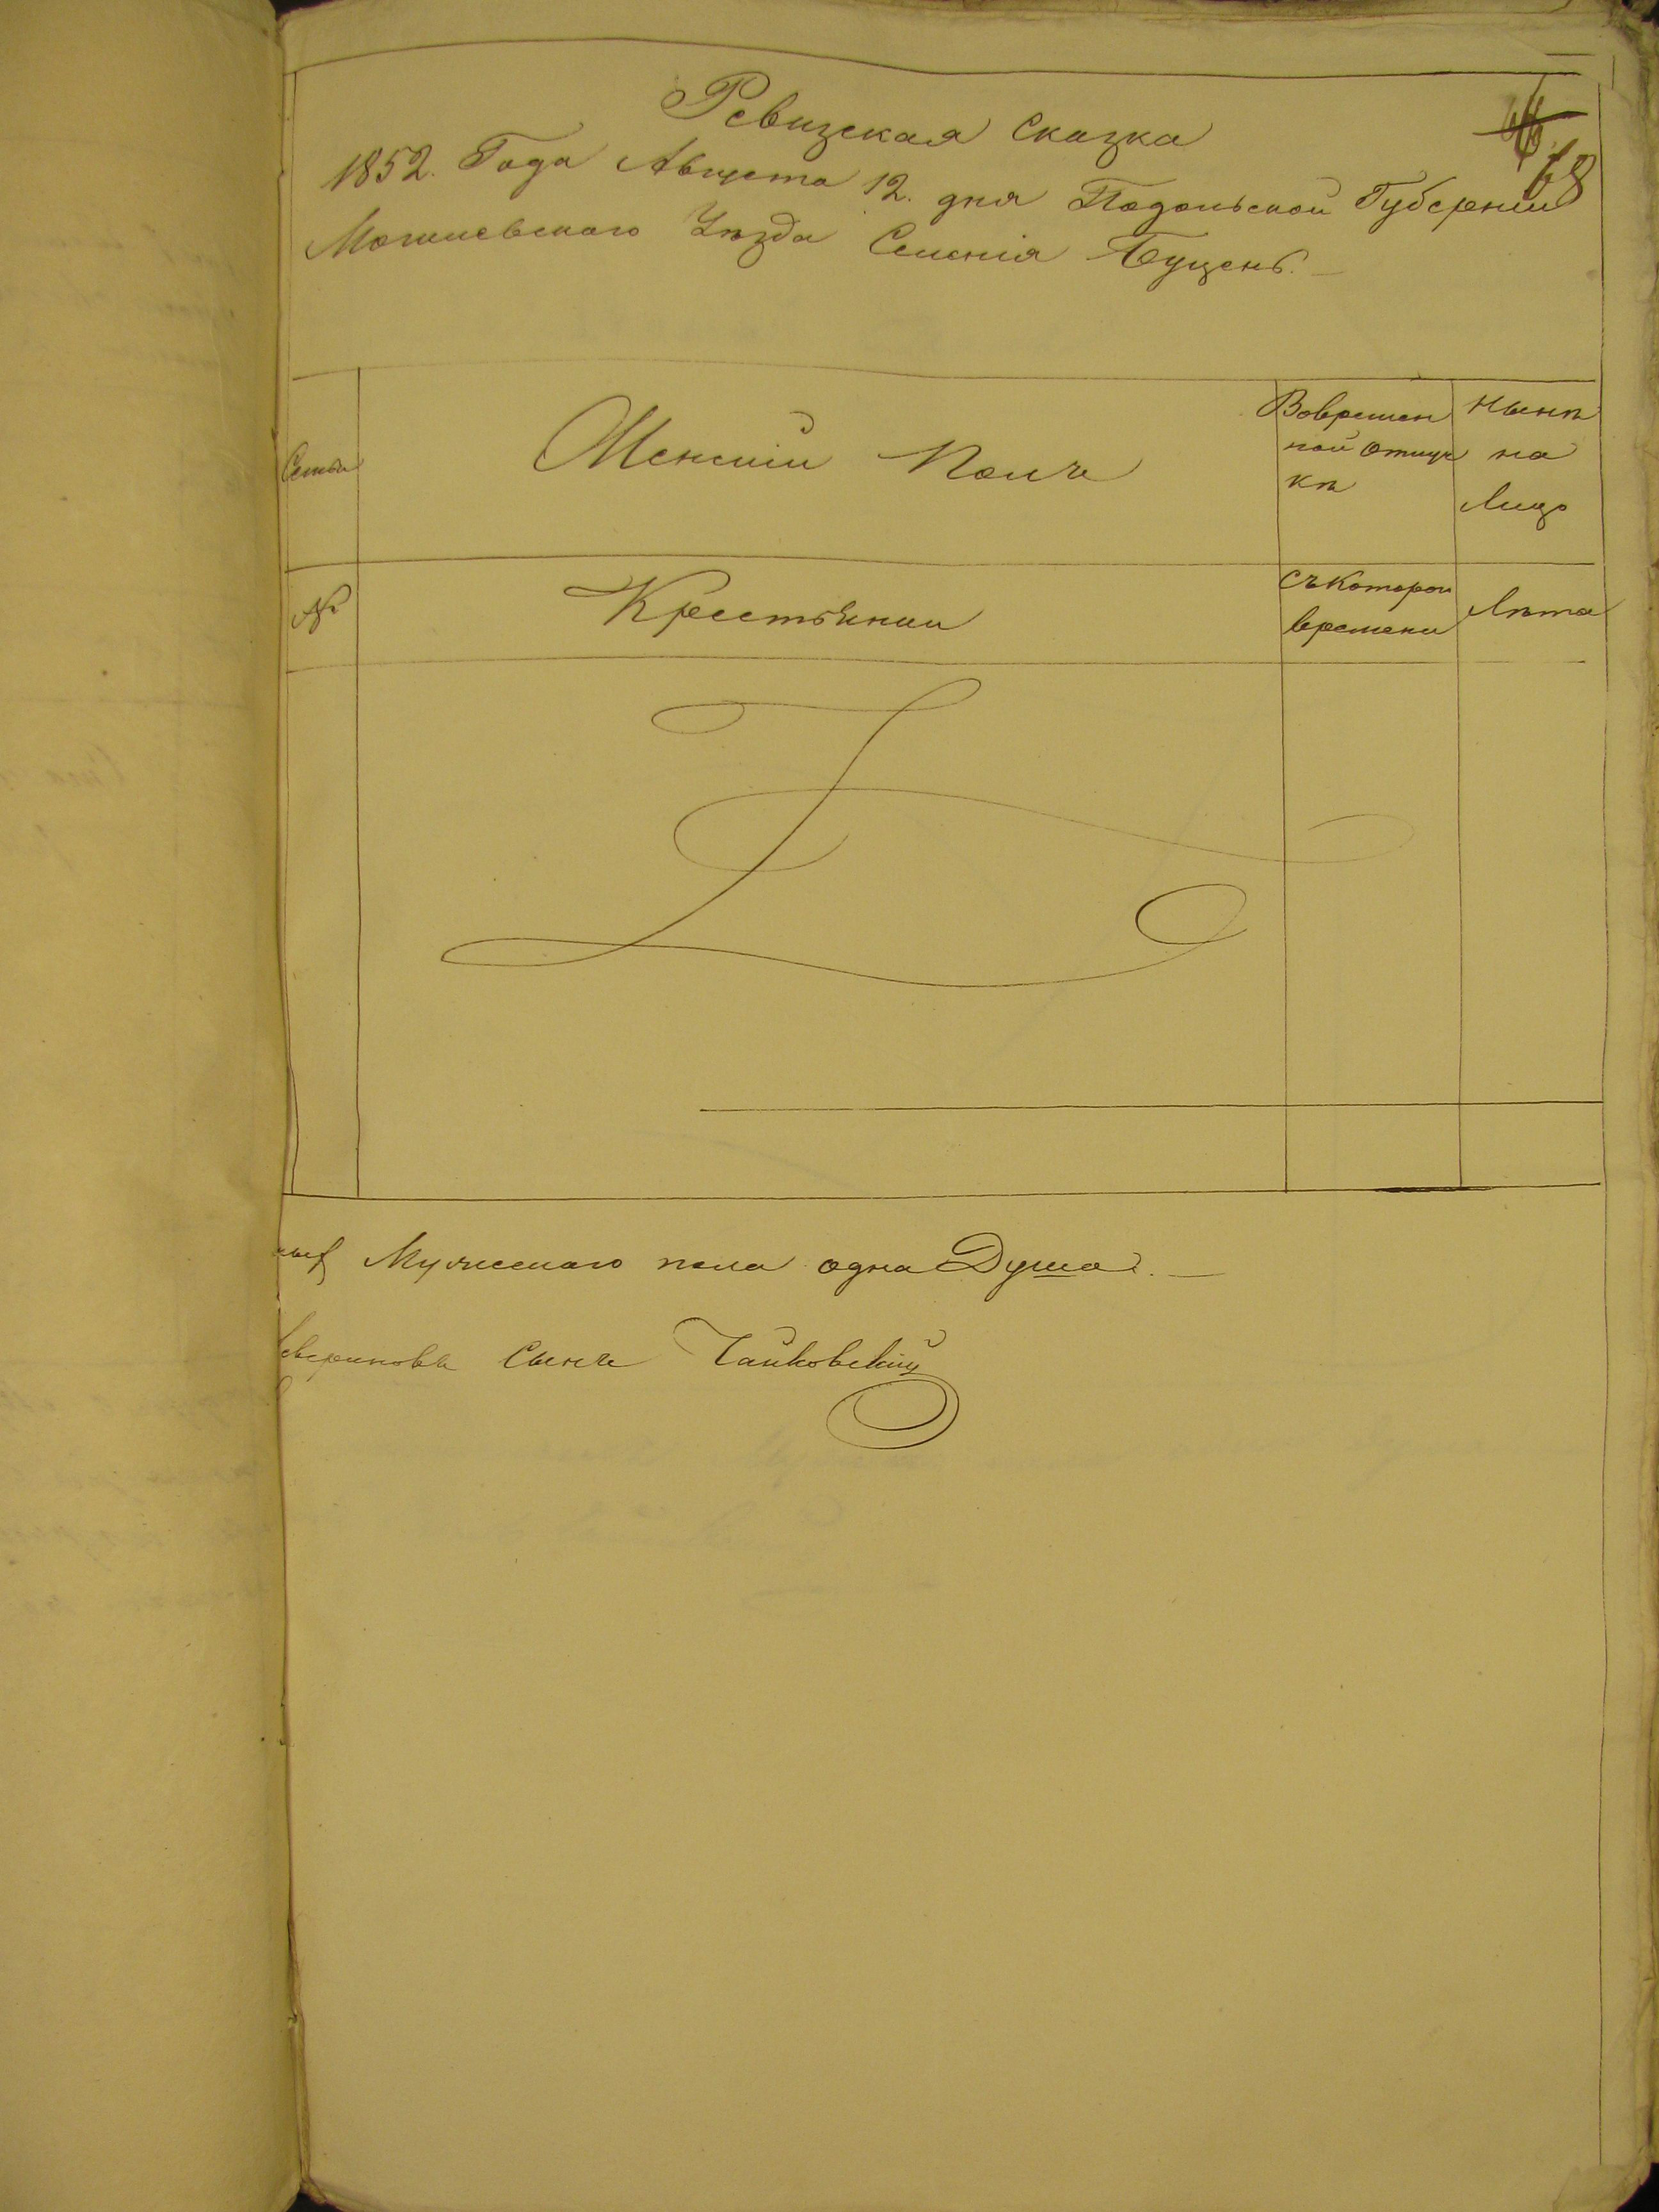 68
Ревизская Сказка
1852. Года Августа 12. дня Подольской Губернии
Могилевского Уѣзда Селенія Буцень.
Семьи
Женский Полъ
Вовремен
ной отлуч
кѣ
Нынѣ
на
Лицо
№
Крестьянки
Съ которои
времени
Лѣта
Мужескаго пола одна Душа. —
Сынъ Чайковскій